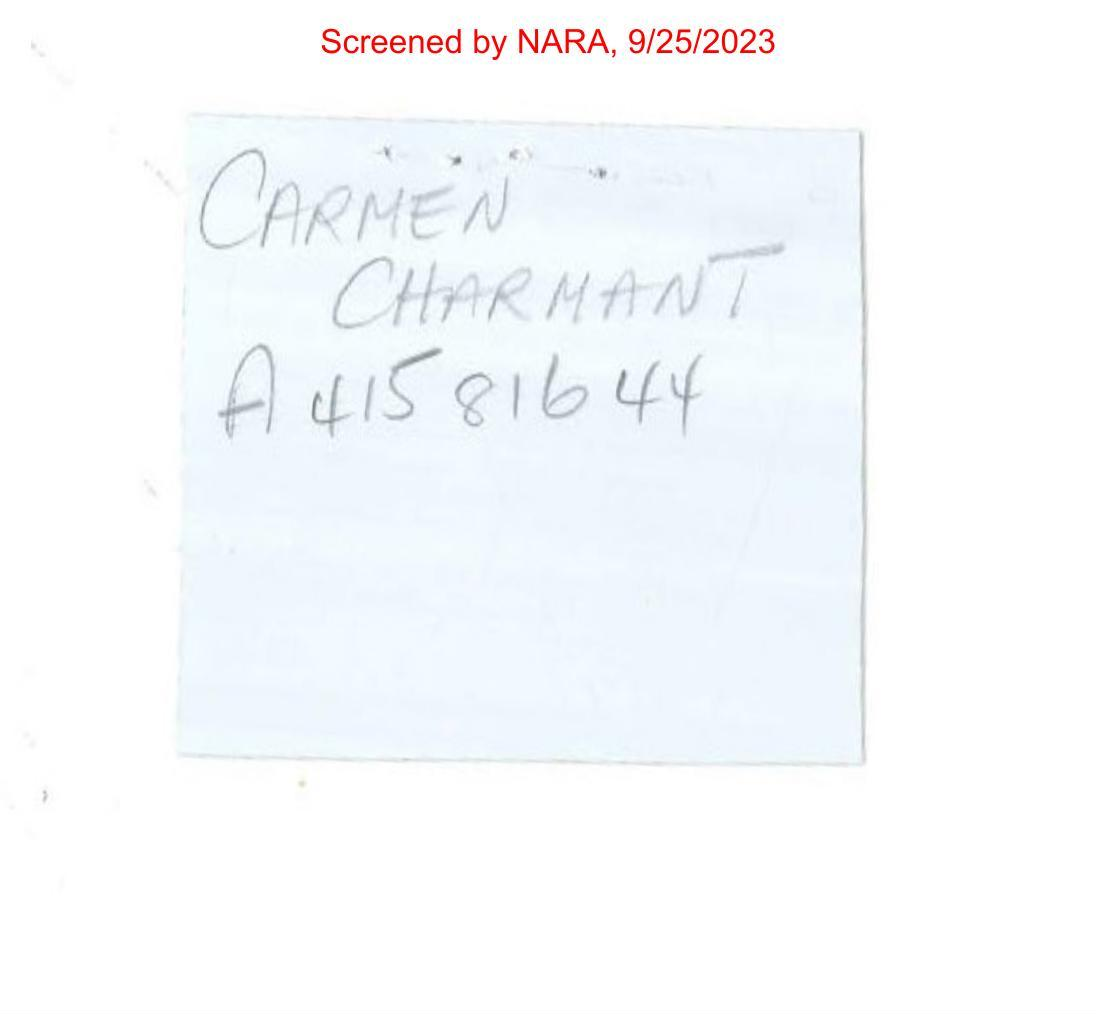 Screened by NARA, 9/25/2023
CARMEN
CHARMANT
A 415 816 44